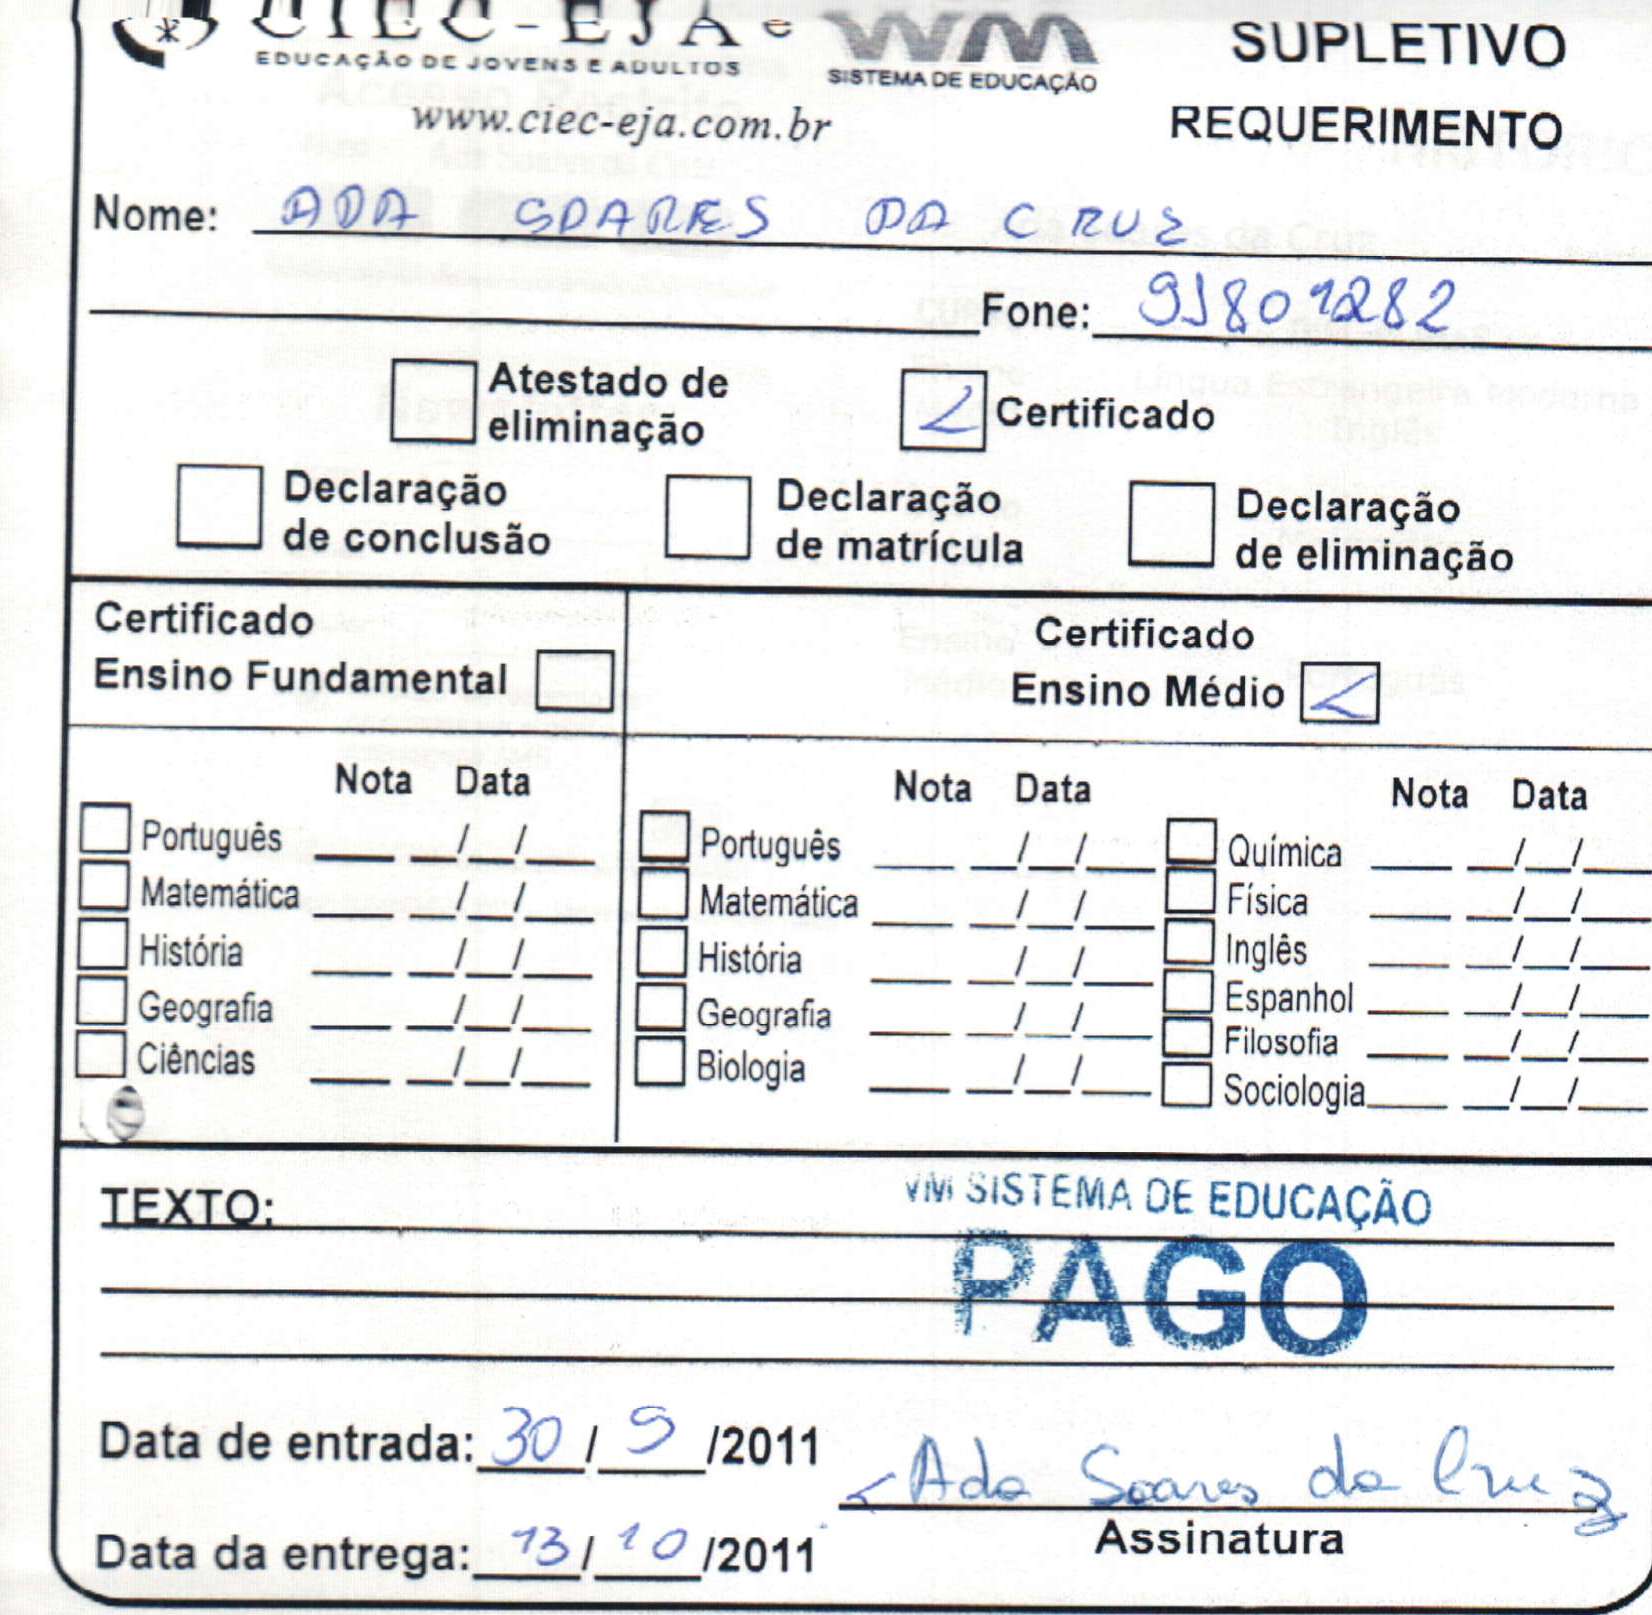 CIEC-EJA e WM SUPLETIVO
EDUCAÇÃO DE JOVENS E ADULTOS SISTEMA DE EDUCAÇÃO
www.ciec-eja.com.br REQUERIMENTO
Nome: ADA SOARES DA CRUZ
Fone: 91801282
Atestado de eliminação Certificado
Declaração de conclusão Declaração de matrícula Declaração de eliminação
Certificado
Ensino Fundamental
Certificado
Ensino Médio
Nota Data
Português __/__/__
Matemática __/__/__
História __/__/__
Geografia __/__/__
Ciências __/__/__
Nota Data
Português __/__/__
Matemática __/__/__
História __/__/__
Geografia __/__/__
Biologia __/__/__
Nota Data
Química __/__/__
Física __/__/__
Inglês __/__/__
Espanhol __/__/__
Filosofia __/__/__
Sociologia __/__/__
TEXTO:
WM SISTEMA DE EDUCAÇÃO
PAGO
Data de entrada: 30/9/2011
Ada Soares da Cruz
Assinatura
Data da entrega: 13/10/2011